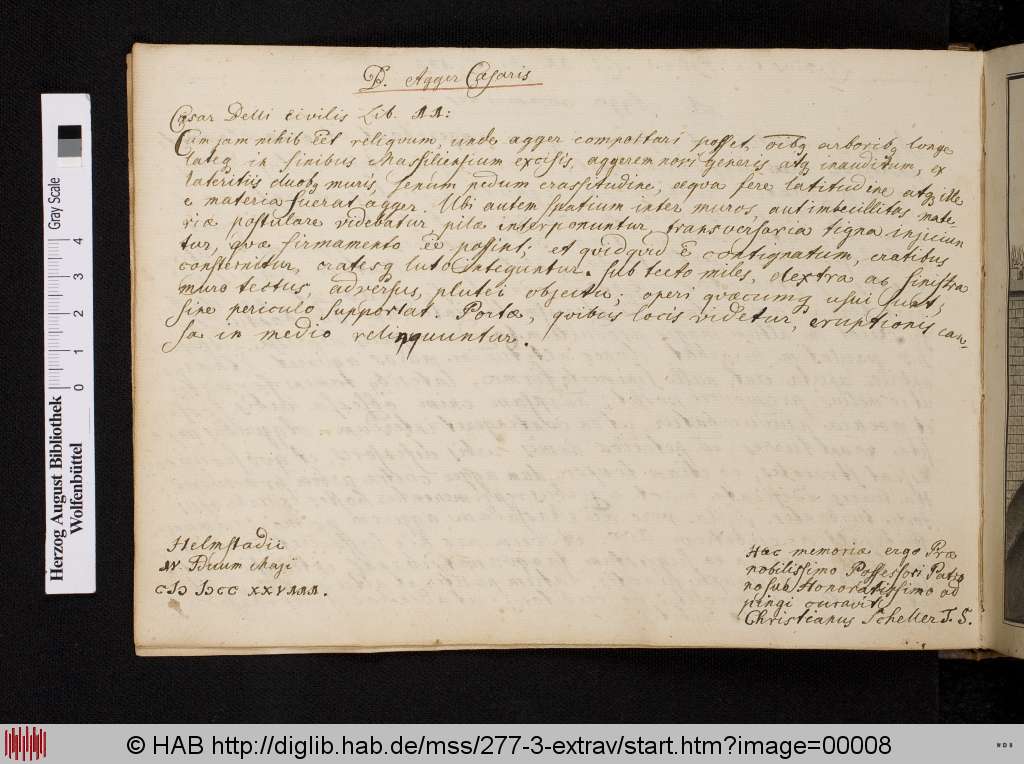 D. Agger Cæsaris
Cæsar Belli Civilis Lib. II:
Cum jam nihil eēt reliqvum, unde agger comportari posset, oībq arboribq longe
lateq in finibus Massiliensium excisis, aggerem novi generis atq inauditum, ex
lateritiis duobq muris, senum pedum crassitudine, æqva fere latitudine atq ille
e materia fuerat agger. Ubi autem spatium inter muros, aut imbecillitas mate-
riæ postulare videbatur, pilæ interponuntur, transversaria tigna injiciun
tur, qvæ firmamento eē possint; et qvidqvid ē contignatum, cratibus
consternitur, cratesq luto integuntur. Sub tecto miles, dextra ac sinistra
muro tectus, adversus, plutei objectu, operi qvæcumq usui sunt,
sine periculo supportat. Portæ, qvibus locis videtur, eruptionis cau-
sa in medio relinquuntur.
Helmstadii
IV. Iduum Maji
CIƆ IƆCC XXVIII.
Hæc memoriæ ergo Præ
nobilissimo Possessori Patro
no suo Honoratissimo ad
pingi curavit
Christianus Scheller T. S.
Herzog August Bibliothek
Wolfenbüttel
Gray Scale
0 1 2 3 4
© HAB http://diglib.hab.de/mss/277-3-extrav/start.htm?image=00008
WDB